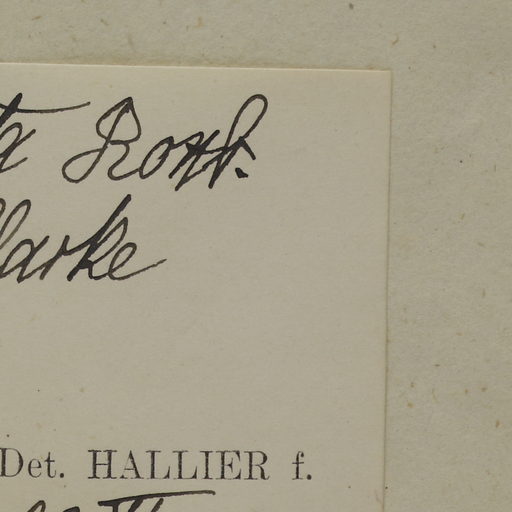 ta Roxb.
larke
Det. HALLIER f.